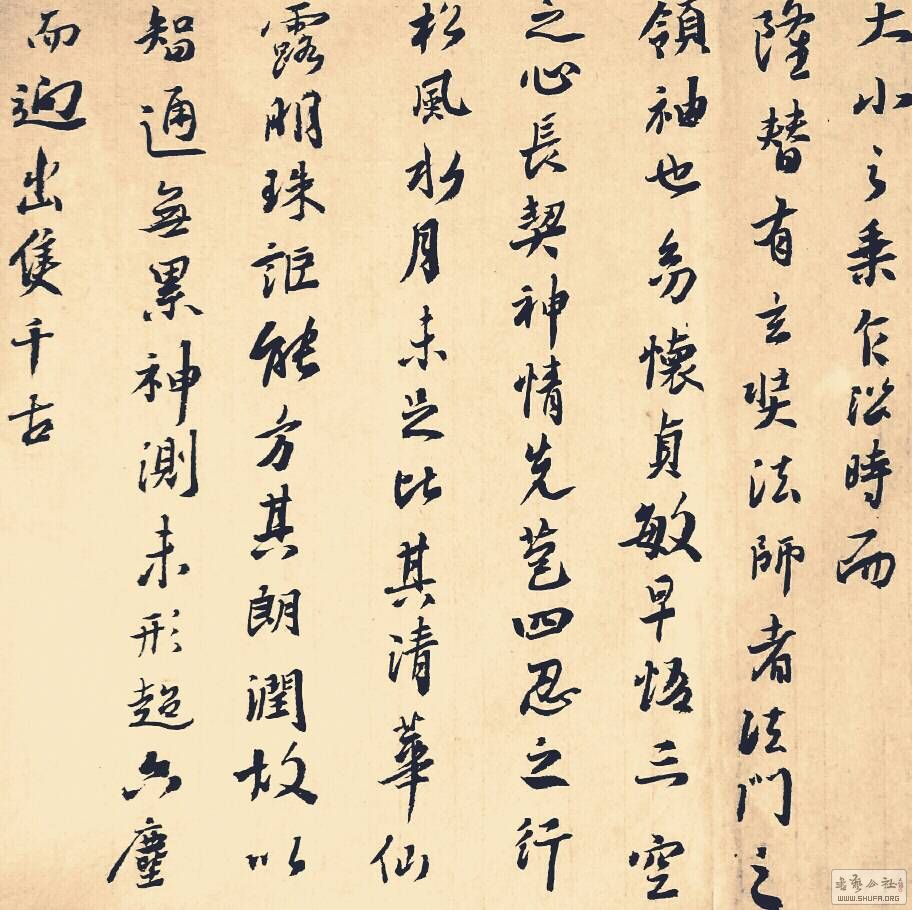 大小之乘乍㳂時而
隆替有玄奘法師者法門之
領袖也幼懷貞敏早悟三空
之心長契神情先苞四忍之行
松風水月未足比其清華仙
露明珠詎能方其朗潤故以
智通無累神測未形超六塵
而迥出隻千古
書藝公社
WWW.SHUFA.ORG